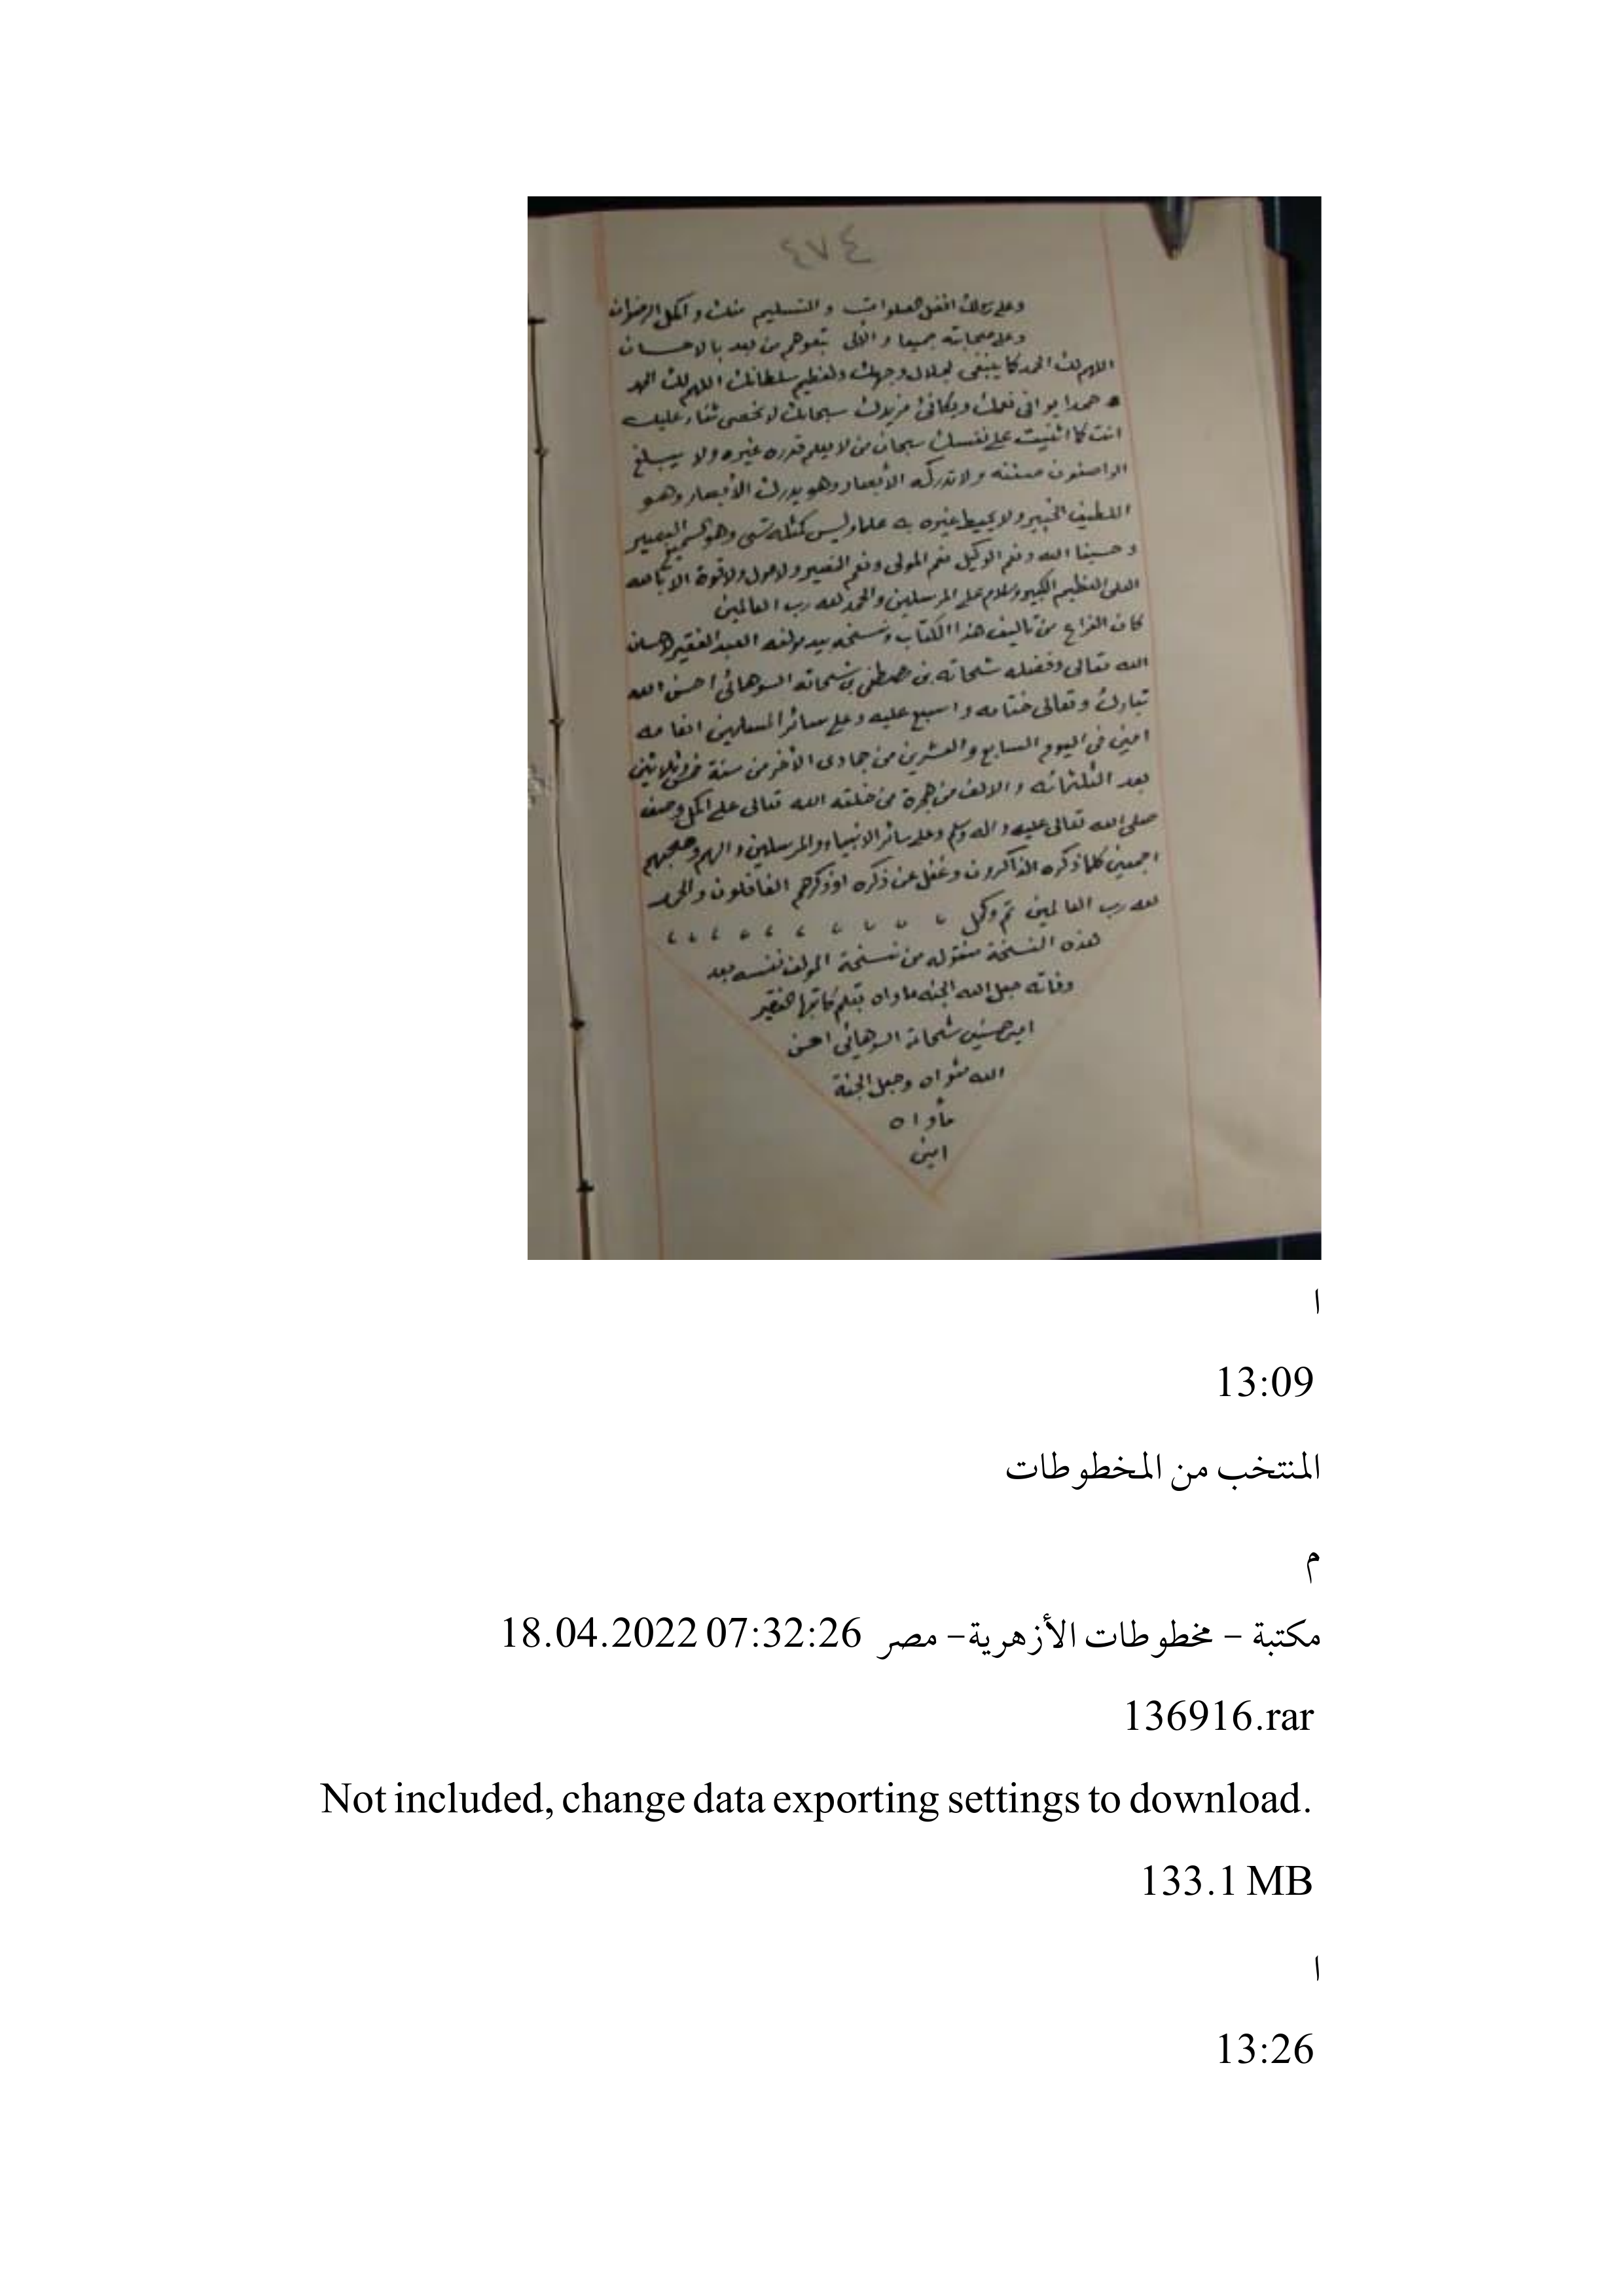 ٤٧٤
وعلى رسولك افضل الصلوات والتسليم منك واكمل الرضوان
وعلا صحابته جميعا والألى تبعوهم من بعد بالاحسان
اللهم لك الحمد كما ينبغى لجلال وجهك ولعظيم سلطانك اللهم لك الحمد
حمدا يوافى نعمك ويكافئ مزيدك سبحانك لا نحصى ثناء عليك
انت كما اثنيت على نفسك سبحان من لا يعلم قدره غيره ولا يبلغ
الواصفون صفته ولا تدركه الأبصار وهو يدرك الأبصار وهو
اللطيف الخبير ولا يحيط غيره به علما وليس كمثله شى وهو السميع البصير
وحسبنا الله ونعم الوكيل نعم المولى ونعم النصير ولا حول ولا قوة الا بالله
العلى العظيم الكبير وسلام على المرسلين والحمد لله رب العالمين
كان الفراغ من تاليف هذا الكتاب ونسخه بيد مولفه العبد الفقير لاحسان
الله تعالى وفضله شحاته بن مصطفى بن شحاته السوهائى احسن الله
تبارك وتعالى ختامه واسبغ عليه وعلى سائر المسلمين انعامه
امين فى اليوم السابع والعشرين من جمادى الأخر من سنة خمس وثلاثين
بعد الثلثمائه والالف من هجرة من خلقه الله تعالى على اكمل وصف
صلى الله تعالى عليه واله وسلم وعلى سائر الانبياء والمرسلين والهم وصحبهم
اجمعين كلما ذكره الذاكرون وغفل عن ذكره او ذكرهم الغافلون والحمد
لله رب العالمين تم وكمل
هذه النسخة منقوله من نسخة المولف نفسه بعد
وفاته جعل الله الجنه ماواه بقلم كاتبها الفقير
امين حسنين شحاتة السوهائى احسن
الله مثواه وجعل الجنة
مأواه
امين
ا
13:09
المنتخب من المخطوطات
م
مكتبة – مخطوطات الأزهرية– مصر 18.04.2022 07:32:26
136916.rar
Not included, change data exporting settings to download.
133.1 MB
ا
13:26